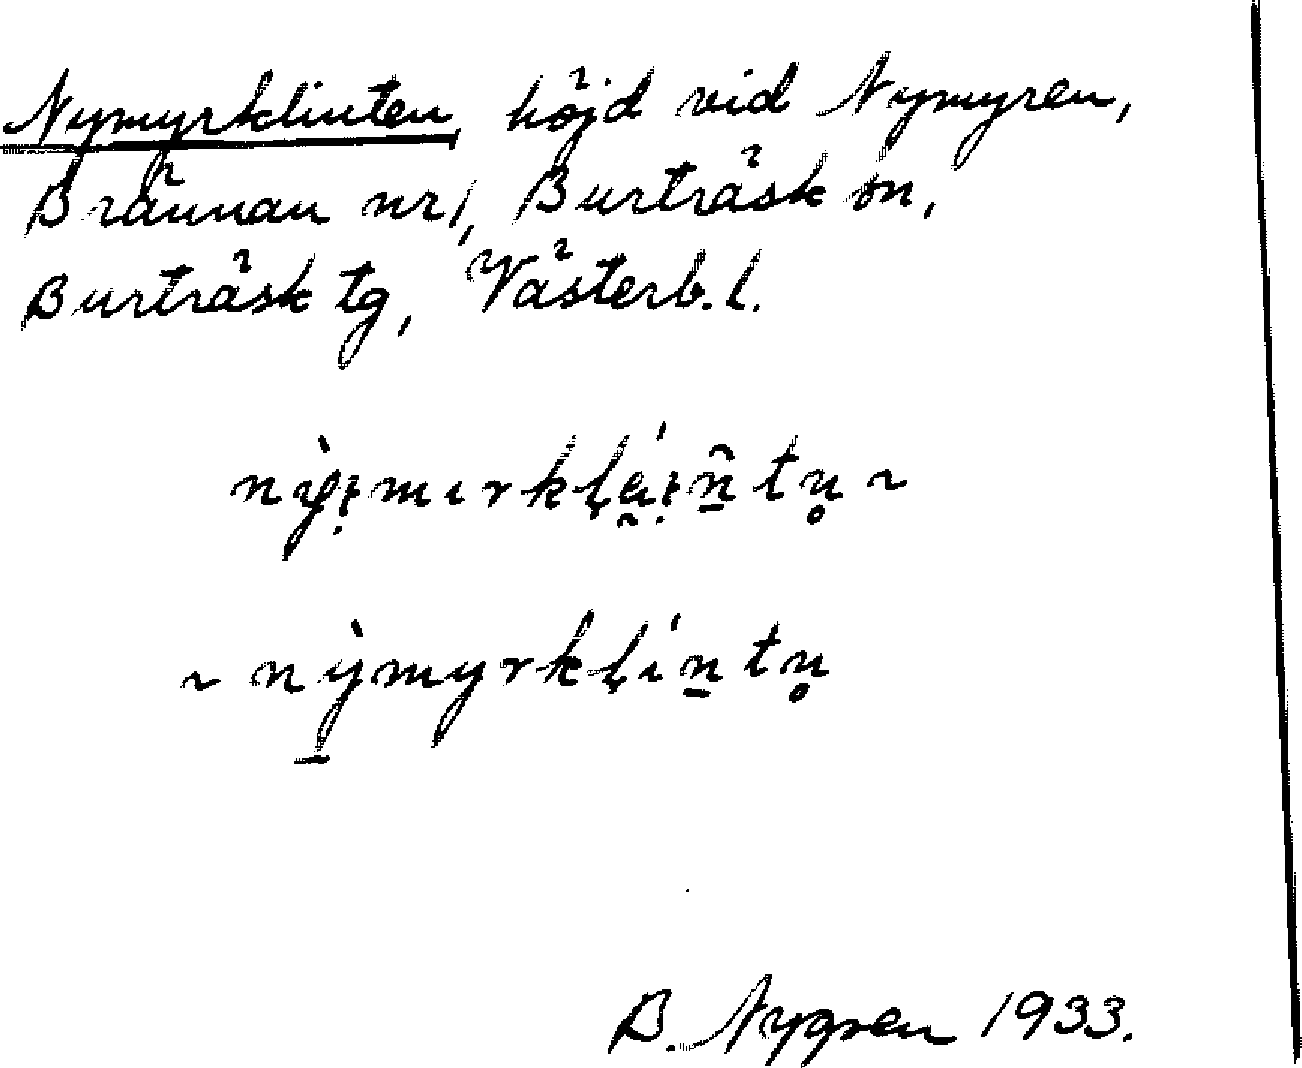 Nymyrklinten, höjd vid Nymyren,
Brännan nr 1, Burträsk sn,
Burträsk tg, Västerb. l.
B. Nygren 1933.